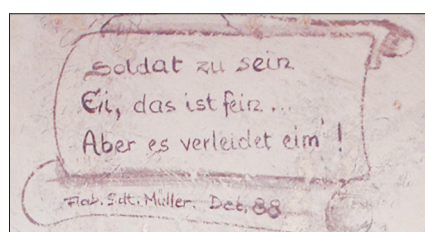 Soldat zu sein
Eii, das ist fein...
Aber es verleidet eim' !
Flab. Sdt. Müller. Det. 88